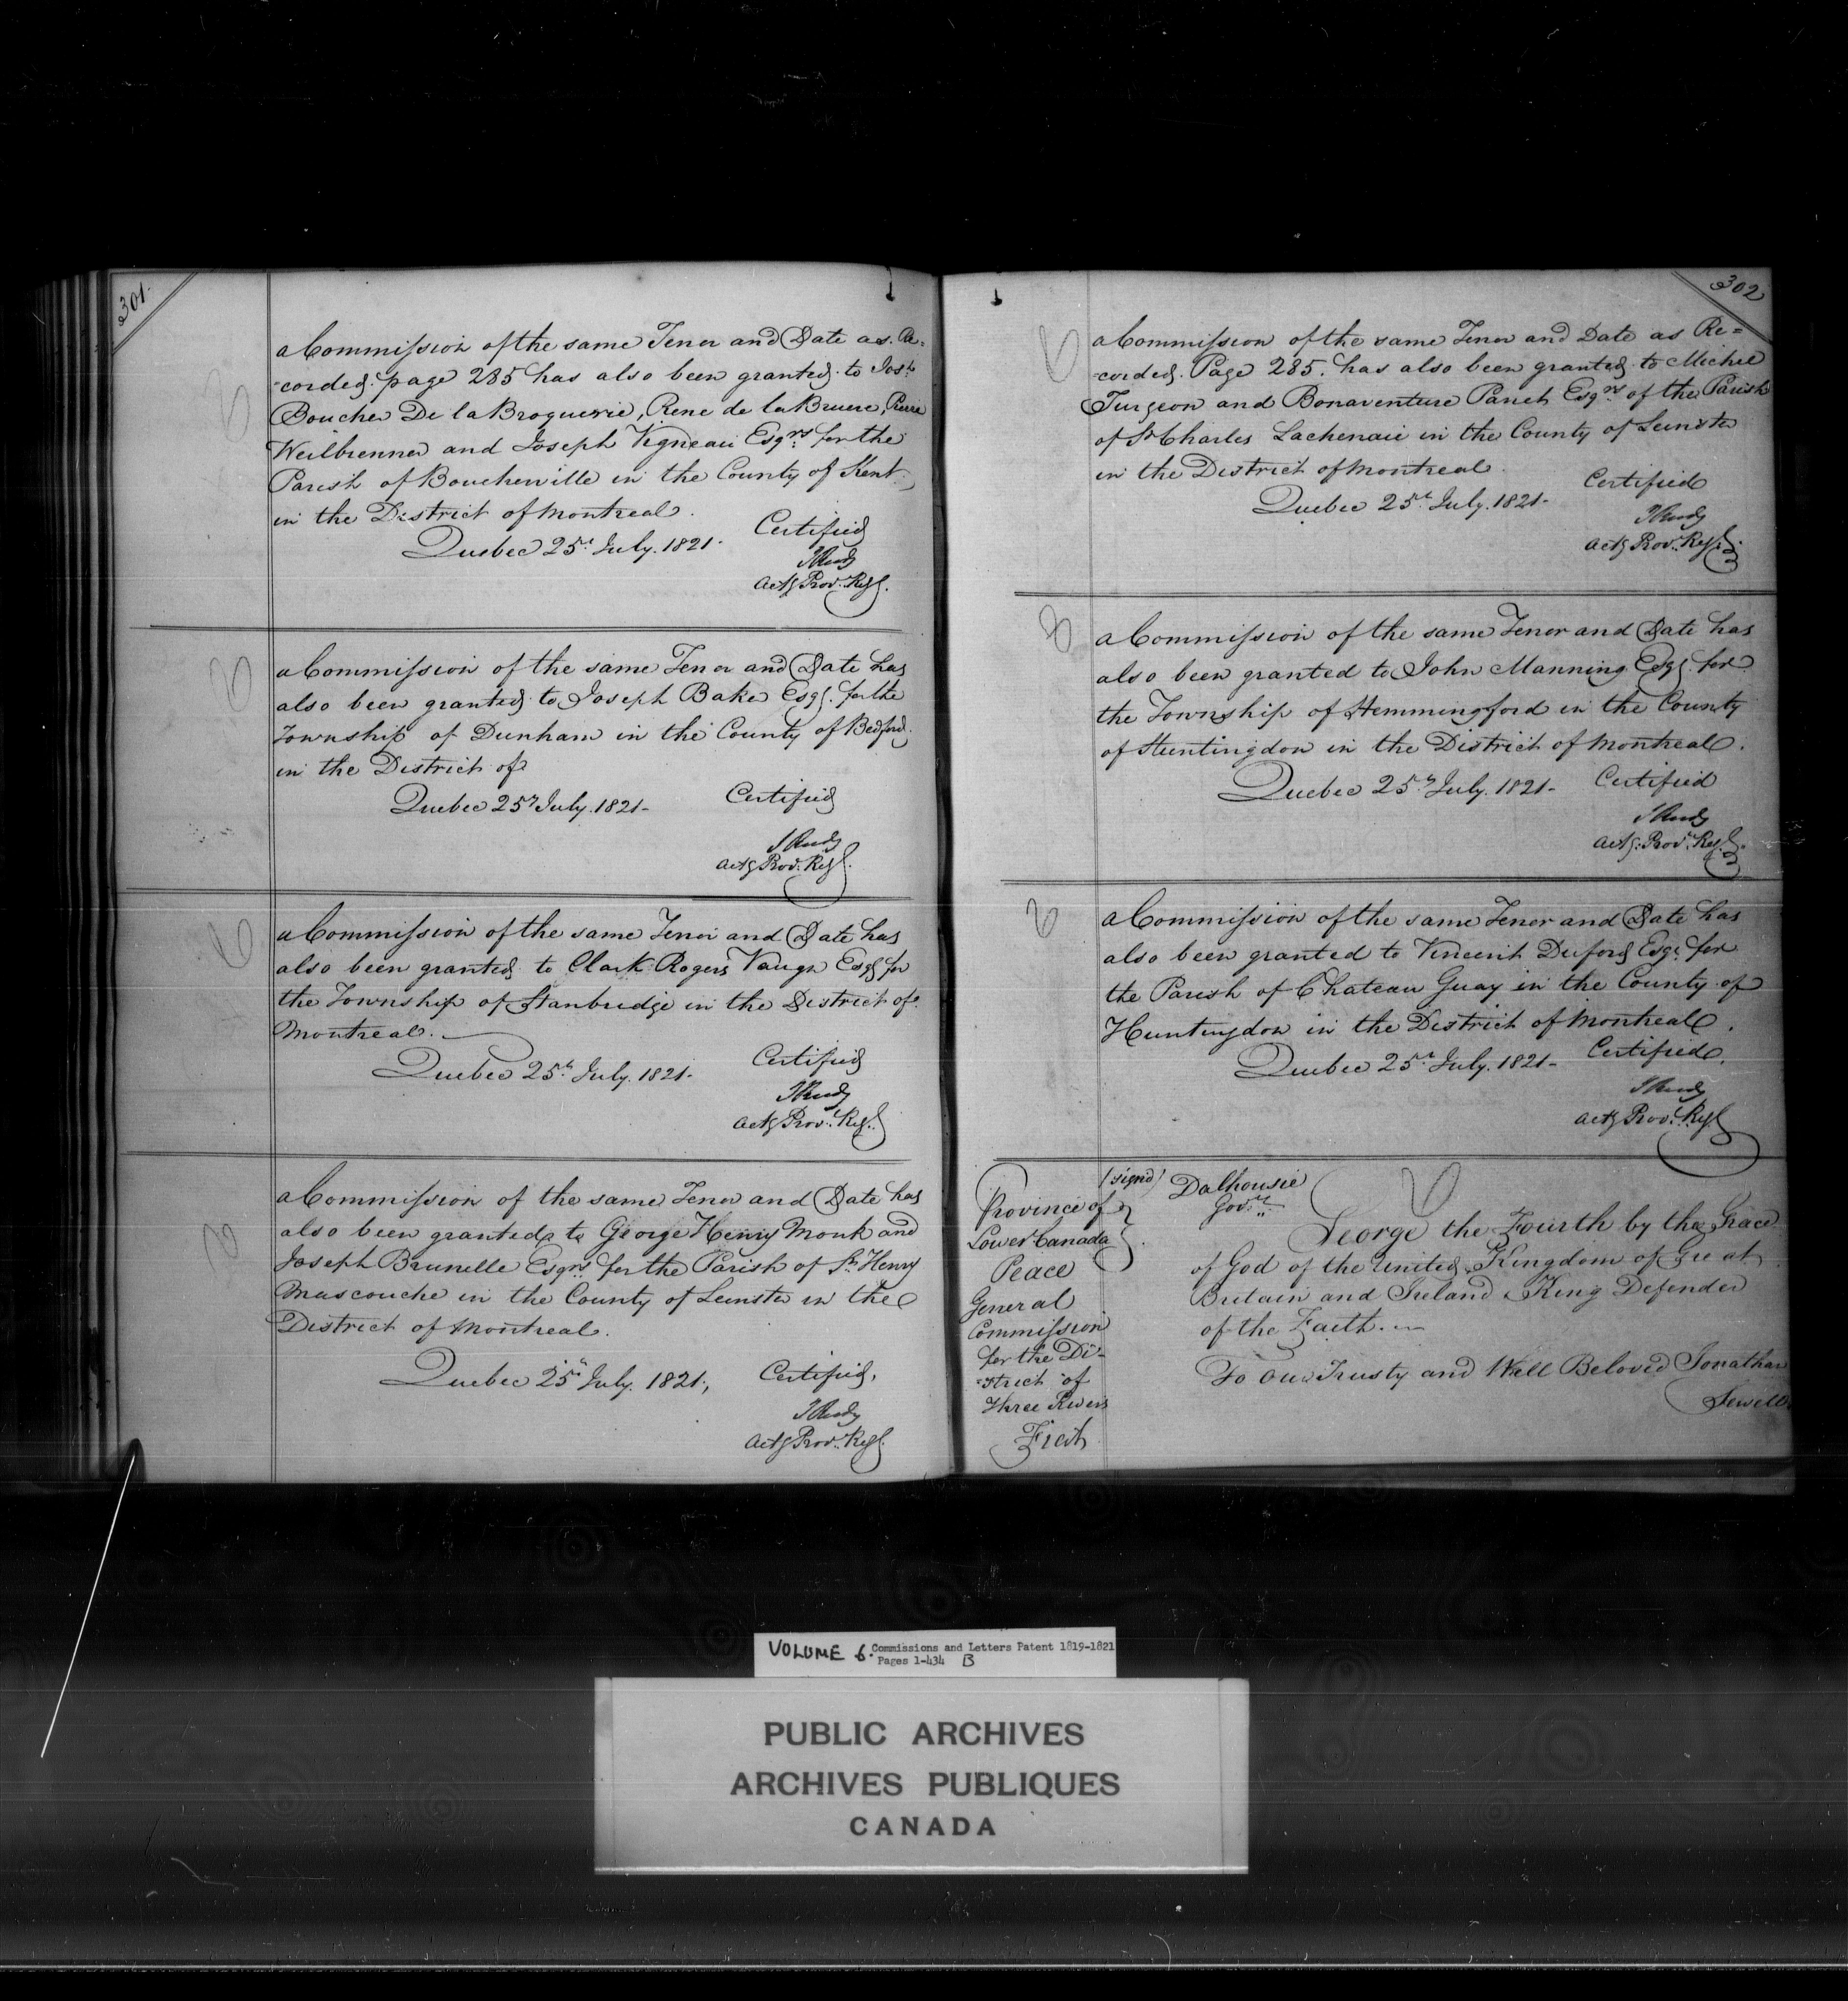 301.
a Commission of the same Tenor and Date as Re=
=corded page 285 has also been granted to Josh
Boucher De la Broquerie, Rene de la Bruere, Pierre
Weilbrenner and Joseph Vigneau Esqrs for the
Parish of Boucherville in the County of Kent
in the District of Montreal.
Quebec 25th July. 1821.
Certified
Actg Prov. Regr.
a Commission of the same Tenor and Date has
also been granted to Joseph Baker Esqr. for the
Township of Dunham in the County of Bedford.
in the District of
Quebec 25th July. 1821-
Certified
Actg Prov. Regr.
a Commission of the same Tenor and Date has
also been granted to Clark Rogers Vaugn Esqr for
the Township of Stanbridge in the District of
Montreal.
Quebec 25th July. 1821.
Certified
Actg Prov. Regr.
a Commission of the same Tenor and Date has
also been granted to George Henry Monk and
Joseph Brunelle Esqrs for the Parish of St. Henry
Mascouche in the County of Leinster in the
District of Montreal.
Quebec 25th July. 1821.,
Certified,
Actg Prov. Regr.
302
a Commission of the same Tenor and Date as Re=
=corded. Page 285. has also been granted to Michel
Turgeon and Bonaventure Panet Esqrs of the Parish
of St Charles Lachenaie in the County of Leinster
in the District of Montreal.
Quebec 25th July. 1821-
Certified
Actg Prov. Regr.
a Commission of the same Tenor and Date has
also been granted to John Manning Esqr. for
the Township of Hemmingford in the County
of Huntingdon in the District of Montreal.
Quebec 25th July. 1821-
Certified
Actg. Prov. Regr.
a Commission of the same Tenor and Date has
also been granted to Vincent Duford Esqr. for
the Parish of Chateau Guay in the County of
Huntingdon in the District of Montreal.
Quebec 25th July. 1821-
Certified.
Actg Prov. Regr
(signd) Dalhousie
Govr.
Province of
Lower Canada
Peace
General
Commission
for the Di-
=strict of
Three Rivers
Fiat
George the Fourth by the Grace
of God of the United Kingdom of Great
Britain and Ireland King Defender
of the Faith.
To Our Trusty and Well Beloved Jonathan
Sewell
VOLUME 6. Commissions and Letters Patent 1819-1821
Pages 1-434 B
PUBLIC ARCHIVES
ARCHIVES PUBLIQUES
CANADA